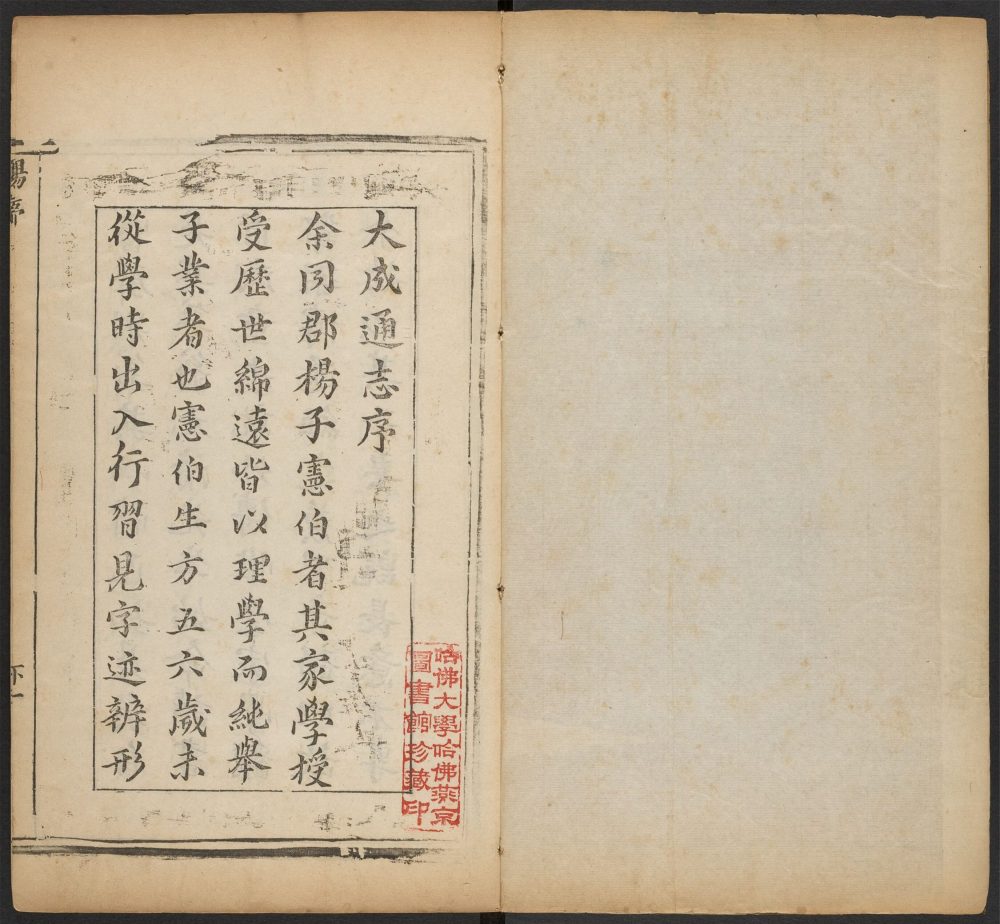 大成通志序
余同郡楊子憲伯者其家學授
受歷世綿遠皆以理學而純舉
子業者也憲伯生方五六歲未
從學時出入行習見字迹辨形
哈佛大學哈佛燕京
圖書館珍藏印